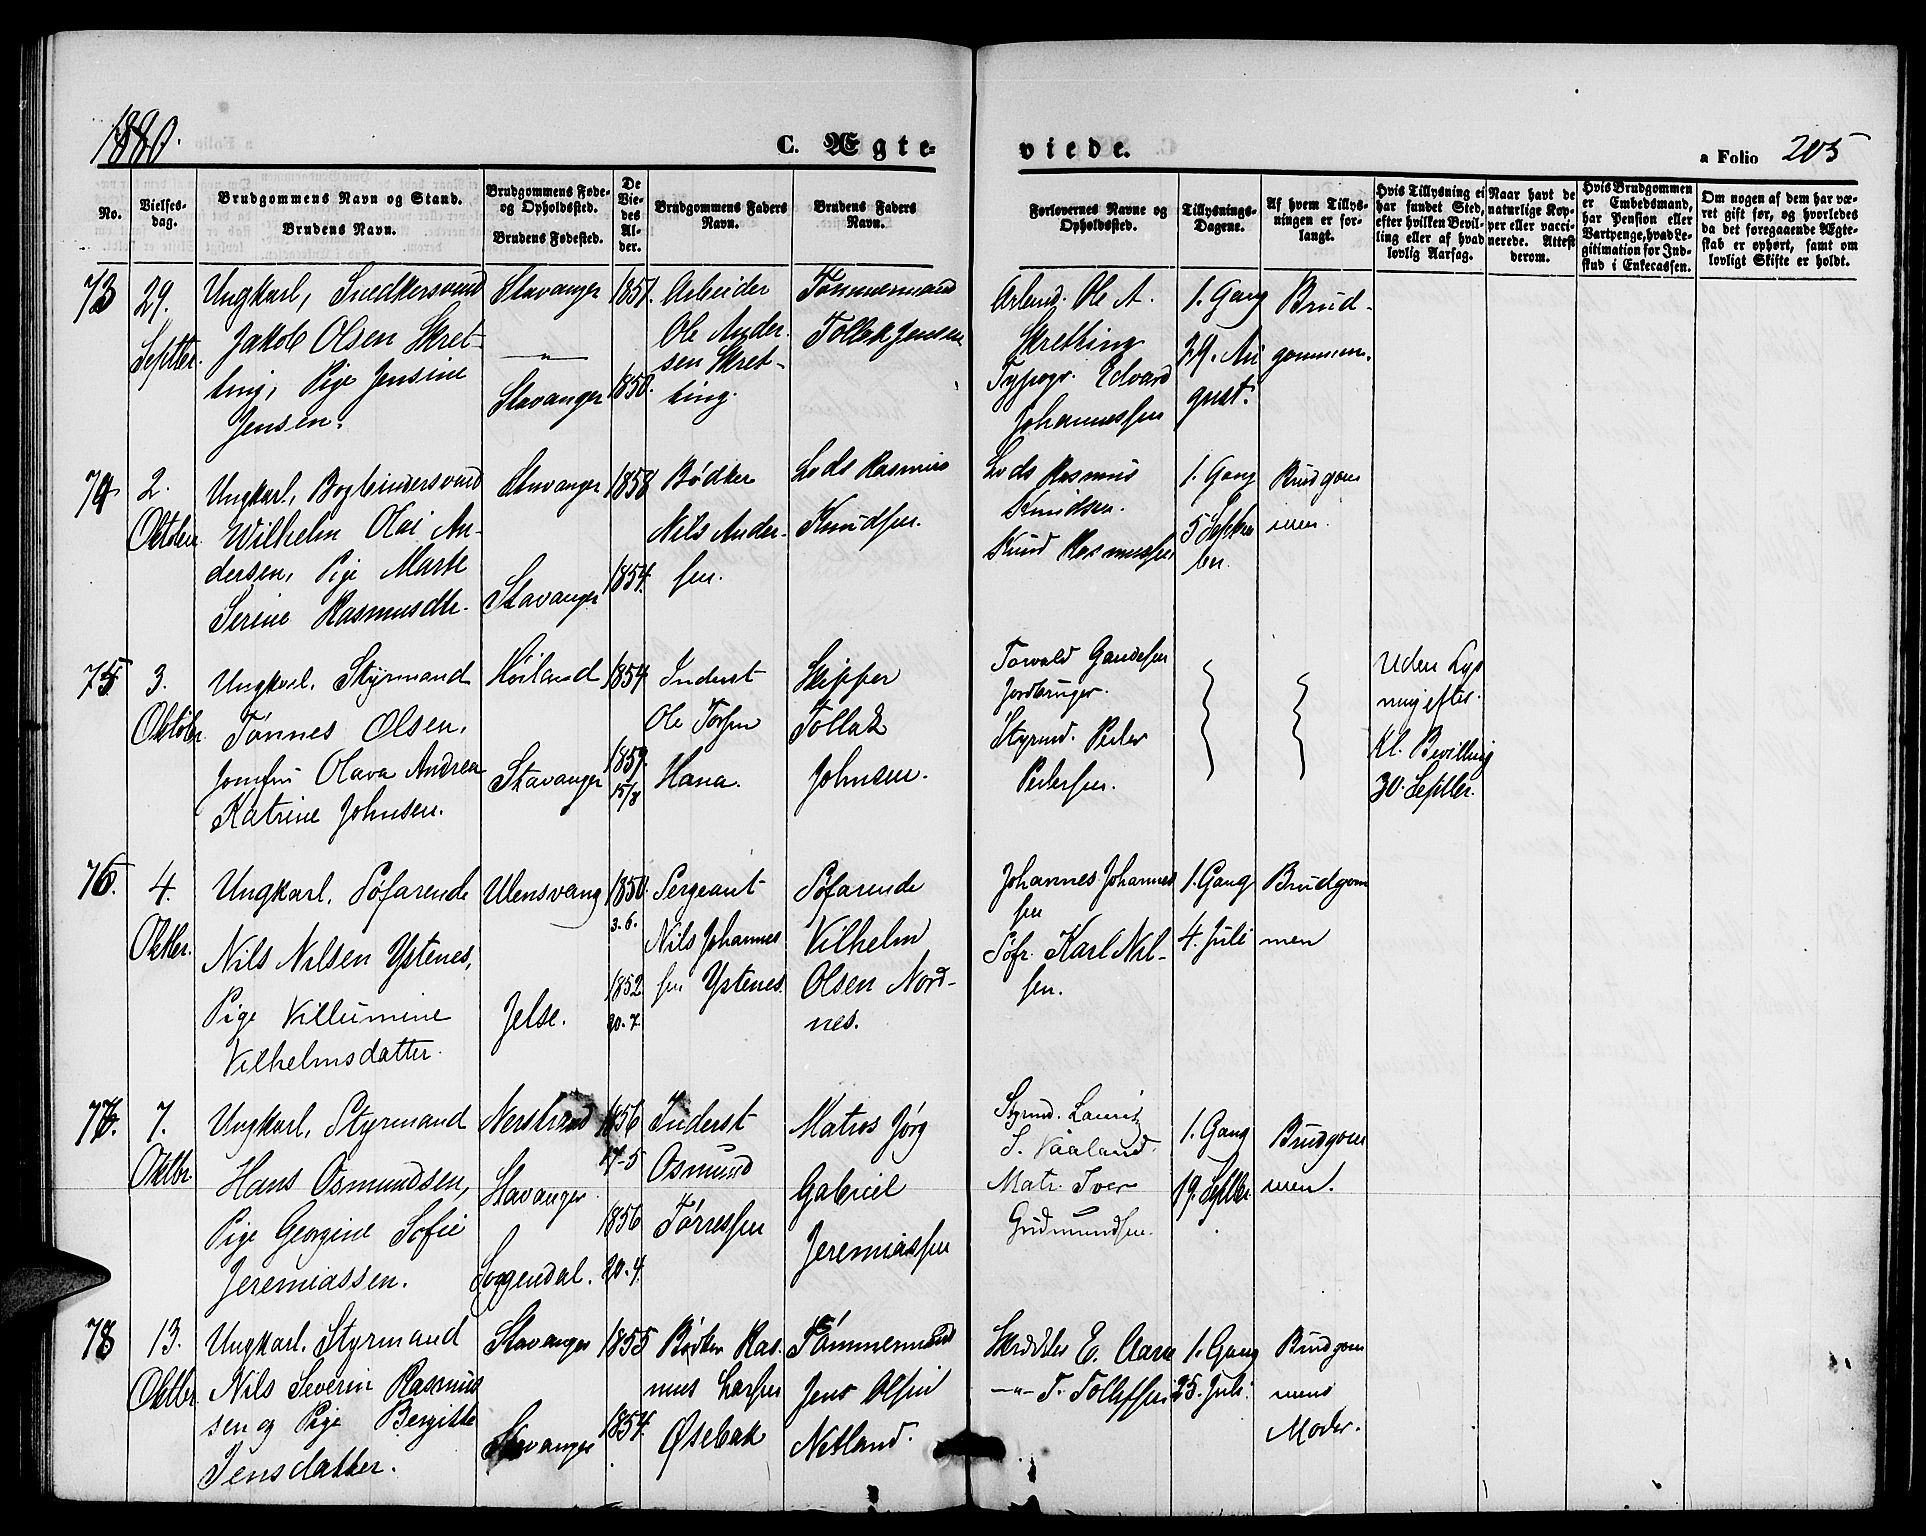 1880.
C. Ægte-
viede.
a Folio 205
No.
Vielses-
dag.
Brudgommens Navn og Stand.
Brudens Navn.
Brudgommens Føde-
og Opholdssted.
Brudens Fødested.
De
Vie-
des
Al-
der.
Brudgommens Faders
Navn.
Brudens Faders
Navn.
Forlovernes Navne og
Opholdssted.
Tillysnings-
Dagene.
Af hvem Tillys-
ningen er for-
langt.
Hvis Tillysning ei
har fundet Sted,
efter hvilken Bevil-
ling eller af hvad
lovlig Aarsag.
Naar havt de
naturlige Kop-
per eller vacci-
nerede. Attest
derom.
Hvis Brudgommen
er Embedsmand,
har Pension eller
Vartpenge, hvad Le-
gitimation for Ind-
skud i Enkecassen.
Om nogen af dem har væ-
ret gift før, og hvorledes
da det foregaaende Ægte-
skab er ophørt, samt om
lovligt Skifte er holdt.
73
29.
Septbr.
Ungkarl, Snedkersvend
Jakob Olsen Skret-
ting, Pige Jensine
Jensen.
Stavanger
—"—
Stavanger
1851.
1850.
Arbeider
Ole Ander-
sen Skret-
ting.
Tømmermand
Tollak Jensen
Arbeid. Ole A.
Skretting
Typogr. Edvard
Johannessen
1. Gang
29. Au
gust.
Brud-
gommen.
74
2.
Oktober
Ungkarl, Bogbindersvend
Wilhelm Olai An-
dersen, Pige Marte
Serine Rasmusdtr.
Stavanger
Stavanger
1858
1854.
Bødker
Nils Ander-
sen.
Lods Rasmus
Knudsen.
Lods Rasmus
Knudsen.
Knud Rasmussen
1. Gang
5 Septem
ber.
Brudgom
men.
75
3.
Oktober
Ungkarl. Styrmand
Tønnes Olsen,
Jomfru Olava Andrea
Katrine Johnsen.
Høiland
Stavanger
1854.
1859.
15/8
Inderst
Ole Torsen
Hana.
Skipper
Tollak
Johnsen.
Torvald Gandesen
Jordbruger.
Styrmd. Peder
Pedersen.
Uden Lys
ning efter
Kl. Bevilling
30. Septbr.
76.
4.
Oktbr.
Ungkarl. Søfarende
Nils Nilsen Ystenes,
Pige Villumine
Vilhelmsdatter.
Ulensvang
Jelse.
1850.
3. 6.
1852
20. 7.
Sergeant
Nils Johannes
sen Ystenes.
Søfarende
Vilhelm
Olsen Nord-
nes.
Johannes Johannes
sen
Søfr. Karl Nil-
sen.
1. Gang
4. Juli
Brudgom
men
77.
7.
Oktbr.
Ungkarl, Styrmand
Hans Osmundsen,
Pige Georgine Sofie
Jeremiassen.
Nerstrand
Stavanger
Soggendal.
1856
-5
1856
20. 4.
Inderst
Osmund
Tørressen
Matros Jørg
Gabriel
Jeremiassen
Styrmd. Lauritz
S. Vaaland.
Matr. Iver
Gudmundsen.
1. Gang
19. Septbr.
Brudgom
men.
78
13.
Oktbr.
Ungkarl. Styrmand
Nils Severin Rasmus
sen og Pige Bergitte
Jensdatter.
Stavanger
Stavanger
1855
1854.
Bødker Ras-
mus Larsen
Øsebak
Tømmermand
Jens Olsen
Netland.
Skrædder E. Aarre
—"— T. Tollefsen
1. Gang
25. Juli.
Brudgom
mens
Moder.